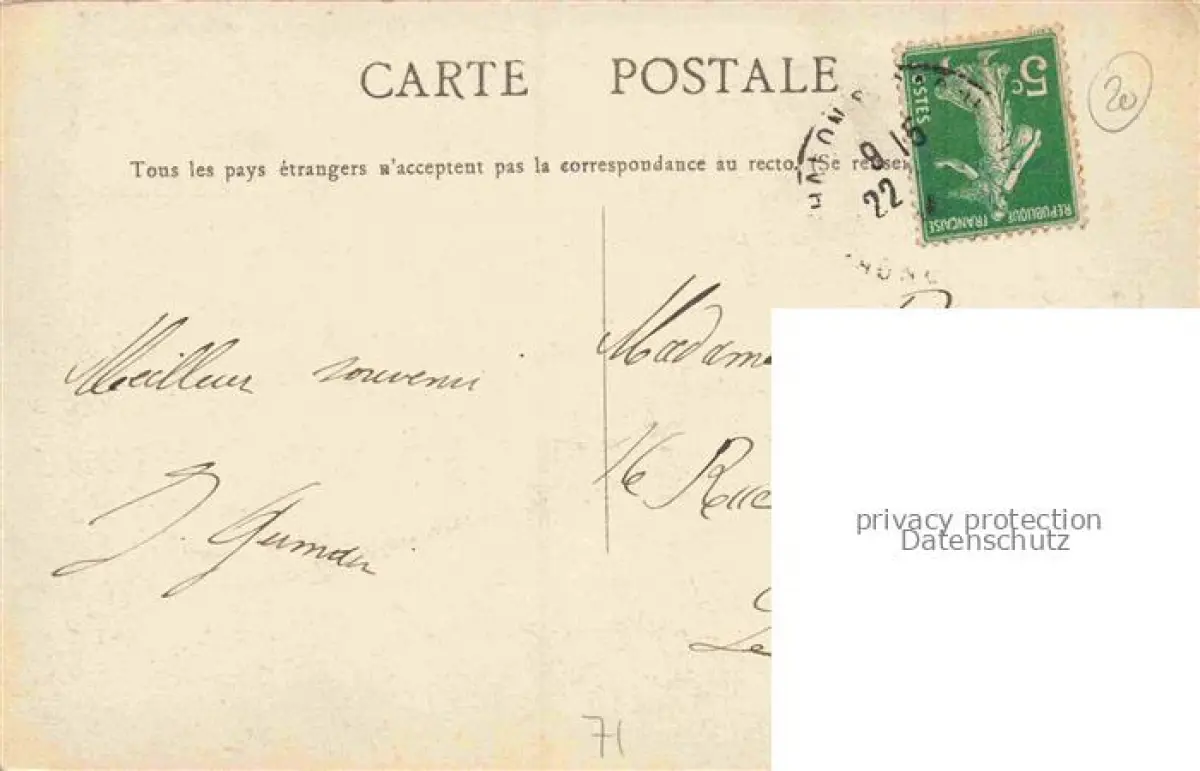 CARTE POSTALE
Tous les pays étrangers n'acceptent pas la correspondance au recto. (Se
5c
POSTES
REPUBLIQUE FRANÇAISE
8 15
22
20
Meilleur souvenir
Madam
16 Rue
J.
Le
privacy protection
Datenschutz
71